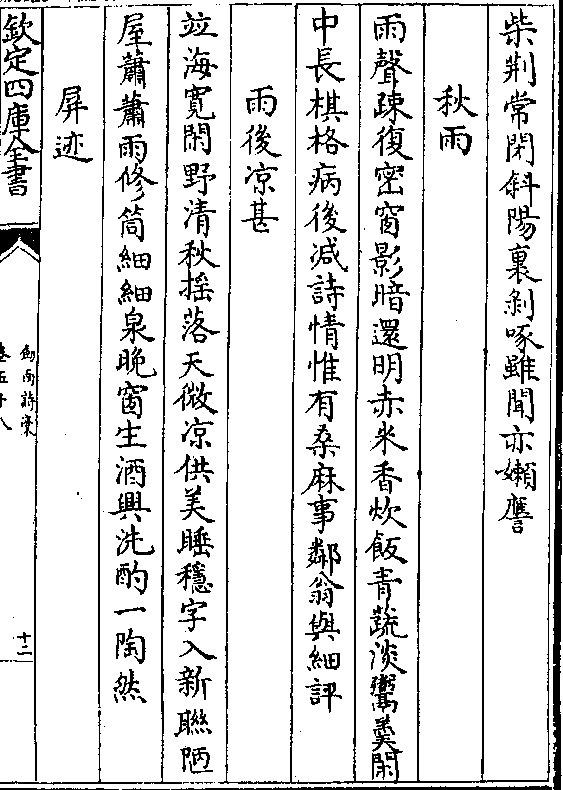 柴荆常閉斜陽裏剝啄雖聞亦嬾譍
秋雨
雨聲疎復密窗影暗還明赤米香炊飯青蔬淡鬻羮閑
中長棋格病後減詩情惟有桑麻事鄰翁與細評
雨後凉甚
竝海寛閑野清秋揺落天微凉供美睡穩字入新聯陋
屋蕭蕭雨修筒細細泉晚窗生酒興洗酌一陶然
屏迹
欽定四庫全書
劍南詩稾
卷五十八
十二